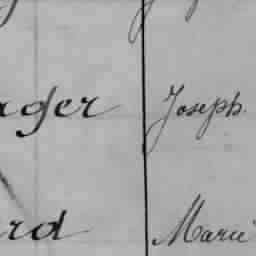 ager Joseph.
rd Marie